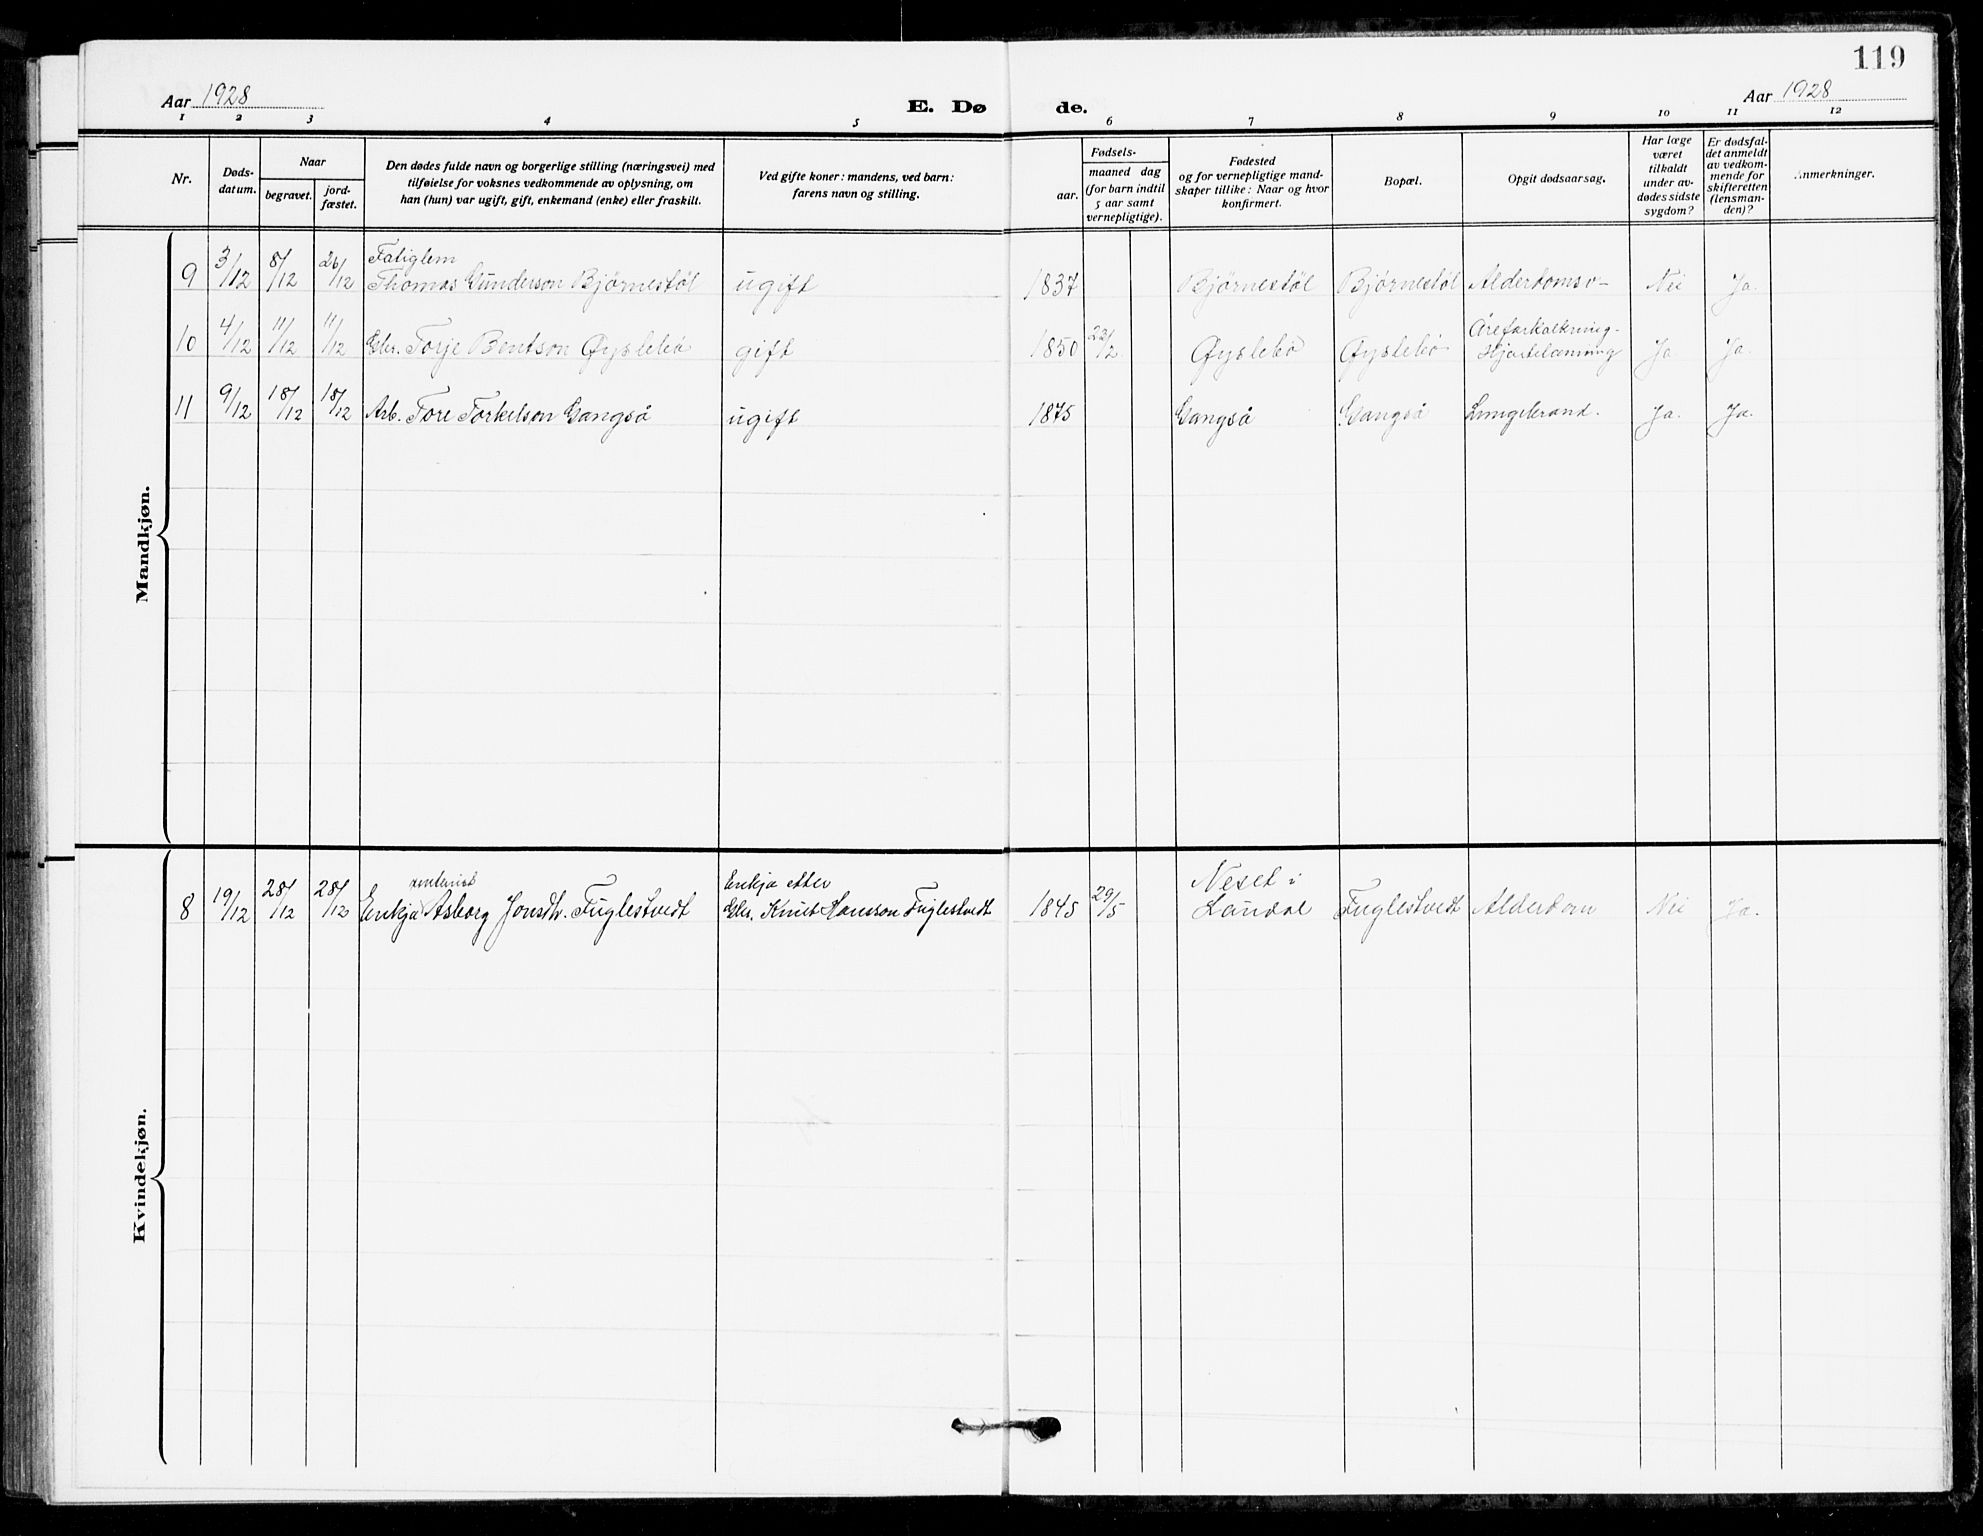 119
Aar 1928
E. Dø de.
Aar 1928
1 2 3 4 5 6 7 8 9 10 11 12
Nr.
Døds-
datum.
Naar
begravet.
jord-
fæstet.
Den dødes fulde navn og borgerlige stilling (næringsvei) med
tilføielse for voksnes vedkommende av oplysning, om
han (hun) var ugift, gift, enkemand (enke) eller fraskilt.
Ved gifte koner: mandens, ved barn:
farens navn og stilling.
Fødsels-
aar.
maaned dag
(for barn indtil
5 aar samt
vernepligtige).
Fødested
og for vernepligtige mand-
skaper tillike: Naar og hvor
konfirmert.
Bopæl.
Opgit dødsaarsag.
Har læge
været
tilkaldt
under av-
dødes sidste
sygdom?
Er dødsfal-
det anmeldt
av vedkom-
mende for
skifteretten
(lensman-
den)?
Anmerkninger.
Mandkjøn.
Fatiglem
9 3/12 8/12 26/12 Thomas Gunderson Bjørnestøl ugift 1837 Bjørnestøl Bjørnestøl Alderdomsv- Nei Ja.
Åreforkalkning-
10 4/12 11/12 11/12 Gbr. Torje Bentson Øyslebø gift 1850 23/2 Øyslebø Øyslebø Hjertelamning Ja Ja.
11 9/12 18/12 18/12 Arb. Tore Torkelson Gangså ugift 1875 Gangså Gangså Lungebrand. Ja. Ja.
Kvindekjøn.
Enkja etter Neset i
8 19/12 28/12 28/12 Enkja Asborg Jonsdtr. Fuglestvedt Gbr. Knut Hansson Fuglestvedt 1845 29/5 Laudal Fuglestvedt Alderdom Nei Ja.